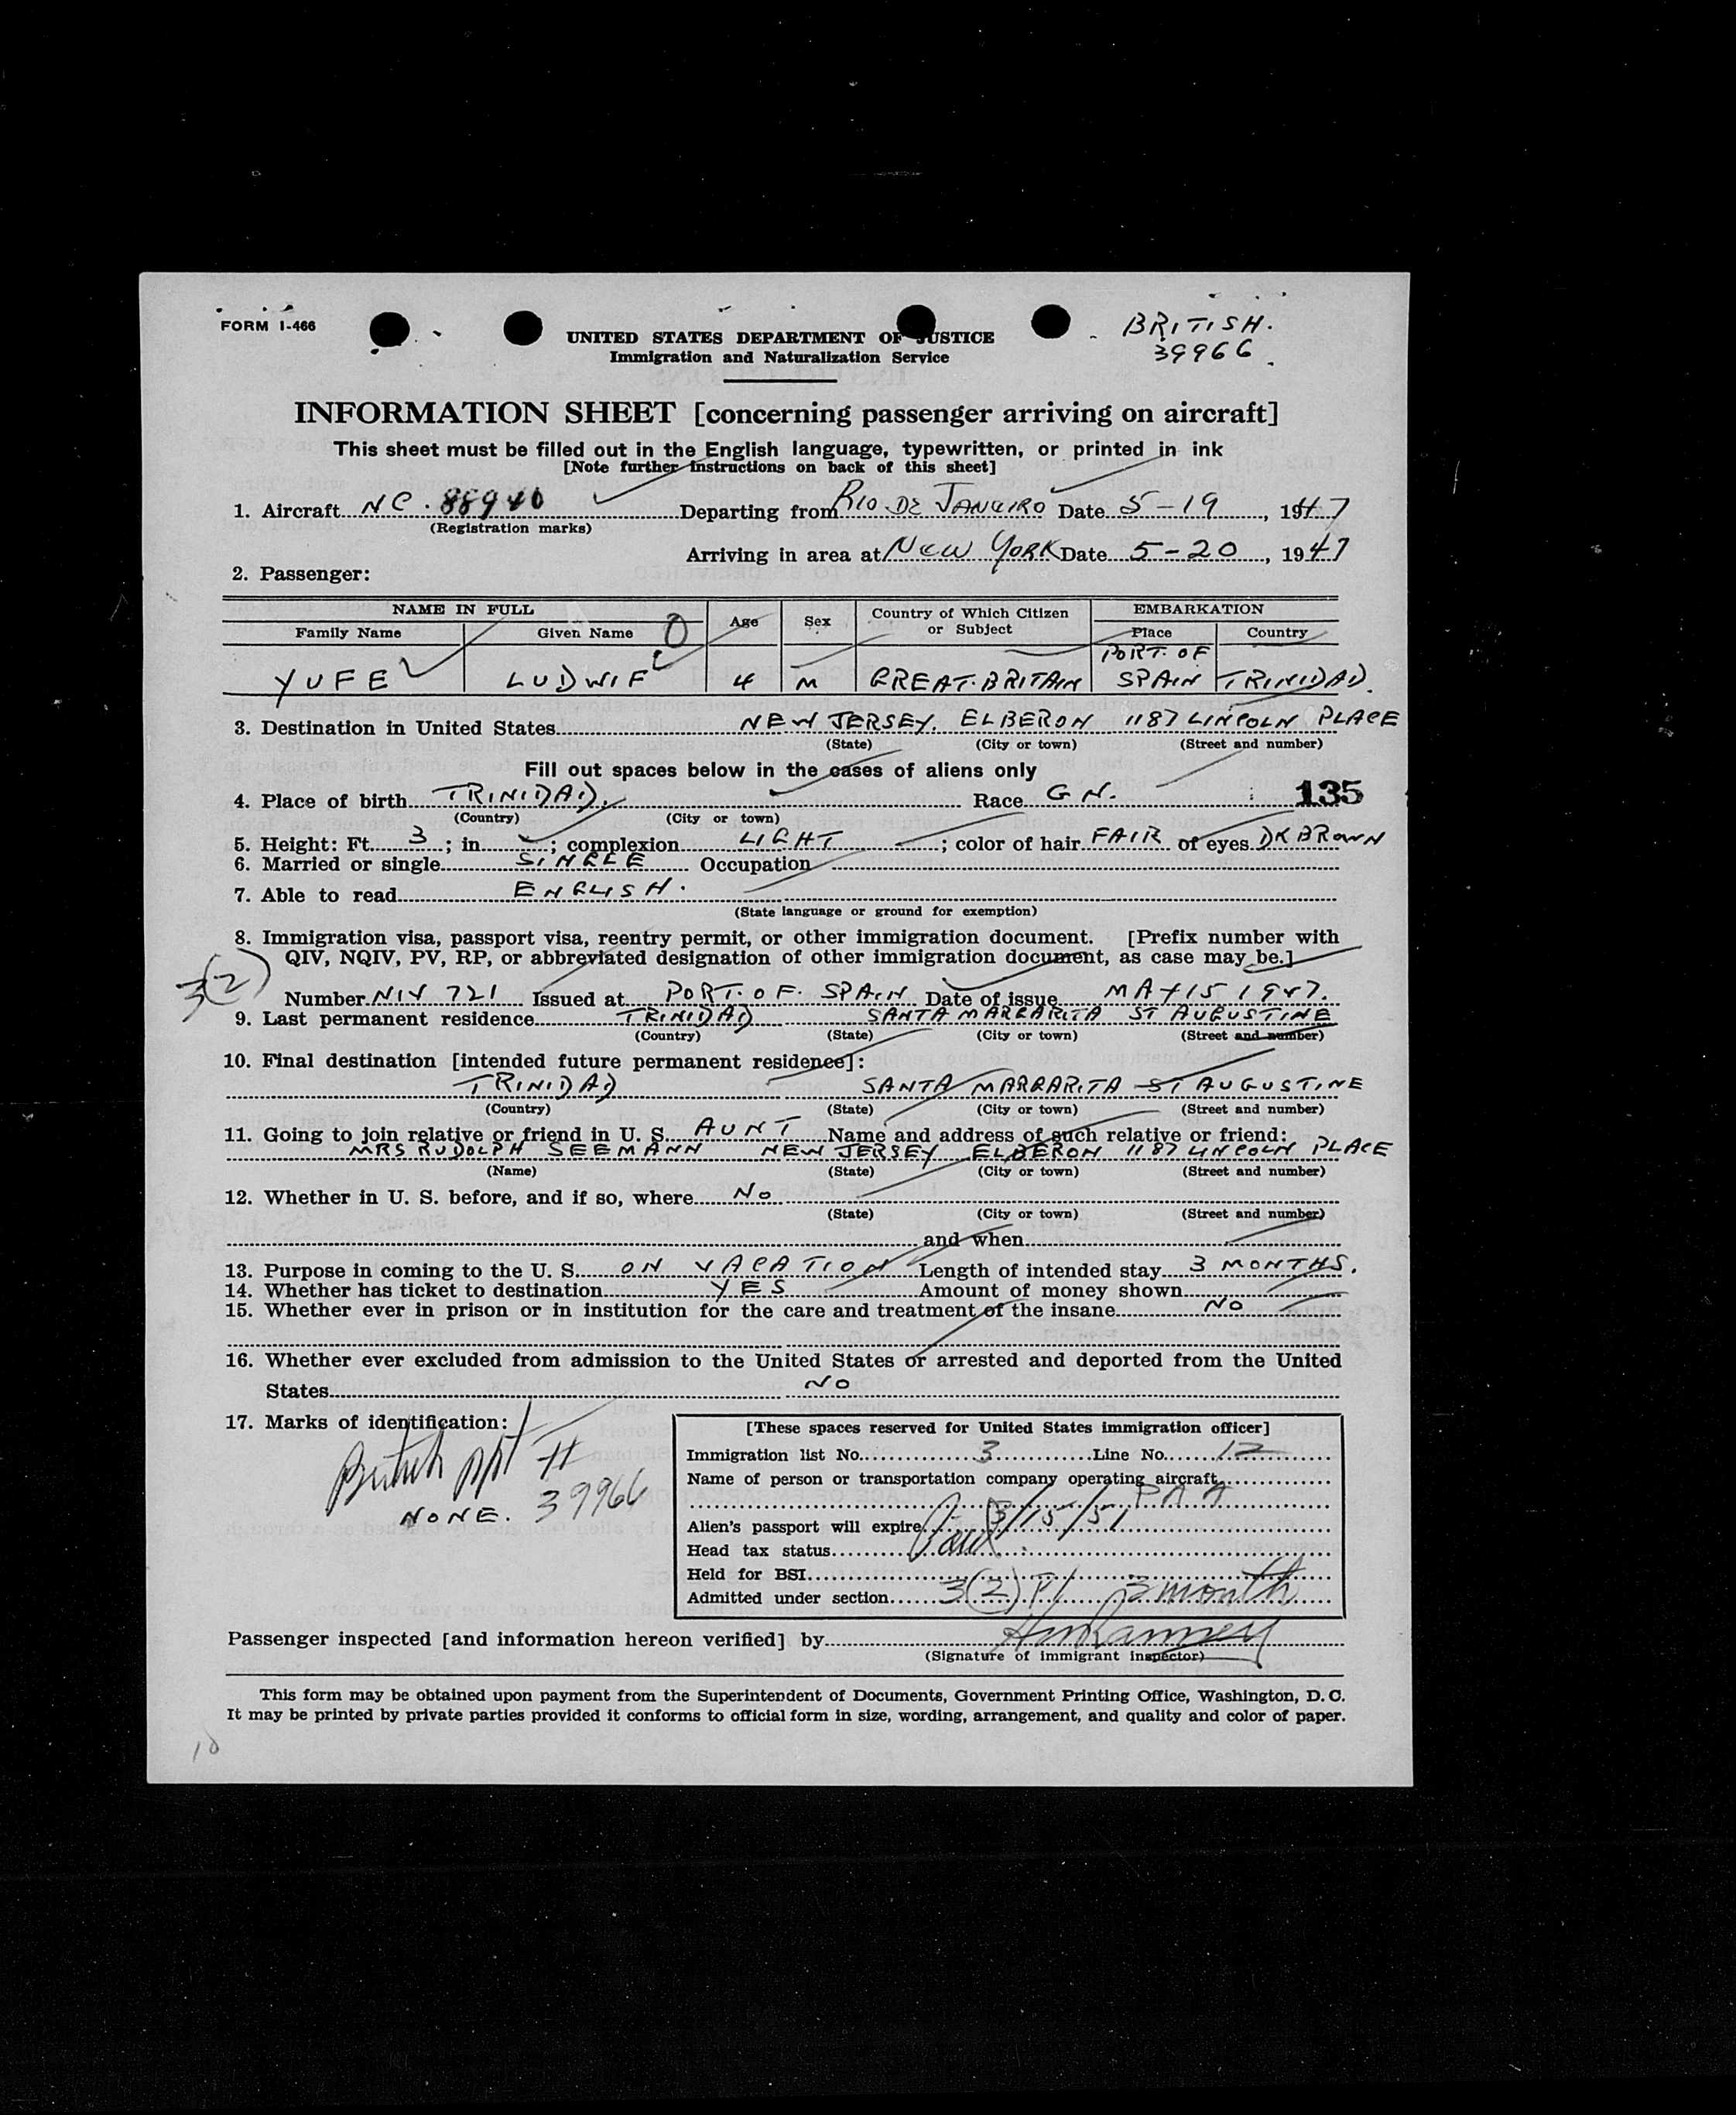 FORM I-466
BRITISH.
39966
UNITED STATES DEPARTMENT OF JUSTICE
Immigration and Naturalization Service
INFORMATION SHEET [concerning passenger arriving on aircraft]
This sheet must be filled out in the English language, typewritten, or printed in ink
[Note further instructions on back of this sheet]
1. Aircraft NC. 88940 Departing from RIO DE JANEIRO Date 5-19, 1947
(Registration marks)
Arriving in area at NEW YORK Date 5-20, 1947
2. Passenger:
NAME IN FULL Age Sex Country of Which Citizen or Subject EMBARKATION
Family Name Given Name Place Country
YUFE LUDWIF 4 M GREAT. BRITAIN PORT. OF SPAIN TRINIDAD.
3. Destination in United States NEW JERSEY. ELBERON 1187 LINCOLN PLACE
(State) (City or town) (Street and number)
Fill out spaces below in the cases of aliens only
4. Place of birth TRINIDAD. Race GN. 135
(Country) (City or town)
5. Height: Ft. 3; in. ; complexion LIGHT; color of hair FAIR of eyes DK BROWN
6. Married or single SINGLE Occupation
7. Able to read ENGLISH.
(State language or ground for exemption)
8. Immigration visa, passport visa, reentry permit, or other immigration document. [Prefix number with
QIV, NQIV, PV, RP, or abbreviated designation of other immigration document, as case may be.]
3(2)
Number NIV 721 Issued at PORT. OF. SPAIN Date of issue MAY 15 1947.
9. Last permanent residence TRINIDAD SANTA MARGARITA ST AUGUSTINE
(Country) (State) (City or town) (Street and number)
10. Final destination [intended future permanent residence]:
TRINIDAD SANTA MARGARITA ST AUGUSTINE
(Country) (State) (City or town) (Street and number)
11. Going to join relative or friend in U. S. AUNT Name and address of such relative or friend:
MRS RUDOLPH SEEMANN NEW JERSEY ELBERON 1187 LINCOLN PLACE
(Name) (State) (City or town) (Street and number)
12. Whether in U. S. before, and if so, where No
(State) (City or town) (Street and number)
and when
13. Purpose in coming to the U. S. ON VACATION Length of intended stay 3 MONTHS.
14. Whether has ticket to destination YES Amount of money shown
15. Whether ever in prison or in institution for the care and treatment of the insane No
16. Whether ever excluded from admission to the United States or arrested and deported from the United
States NO
17. Marks of identification:
British ppt #
NONE. 39966
[These spaces reserved for United States immigration officer]
Immigration list No. 3 Line No. 12
Name of person or transportation company operating aircraft
PAA
Alien's passport will expire 3/15/51
Head tax status Paid
Held for BSI
Admitted under section 3(2) P/ 3 month
Passenger inspected [and information hereon verified] by
(Signature of immigrant inspector)
This form may be obtained upon payment from the Superintendent of Documents, Government Printing Office, Washington, D. C.
It may be printed by private parties provided it conforms to official form in size, wording, arrangement, and quality and color of paper.
10